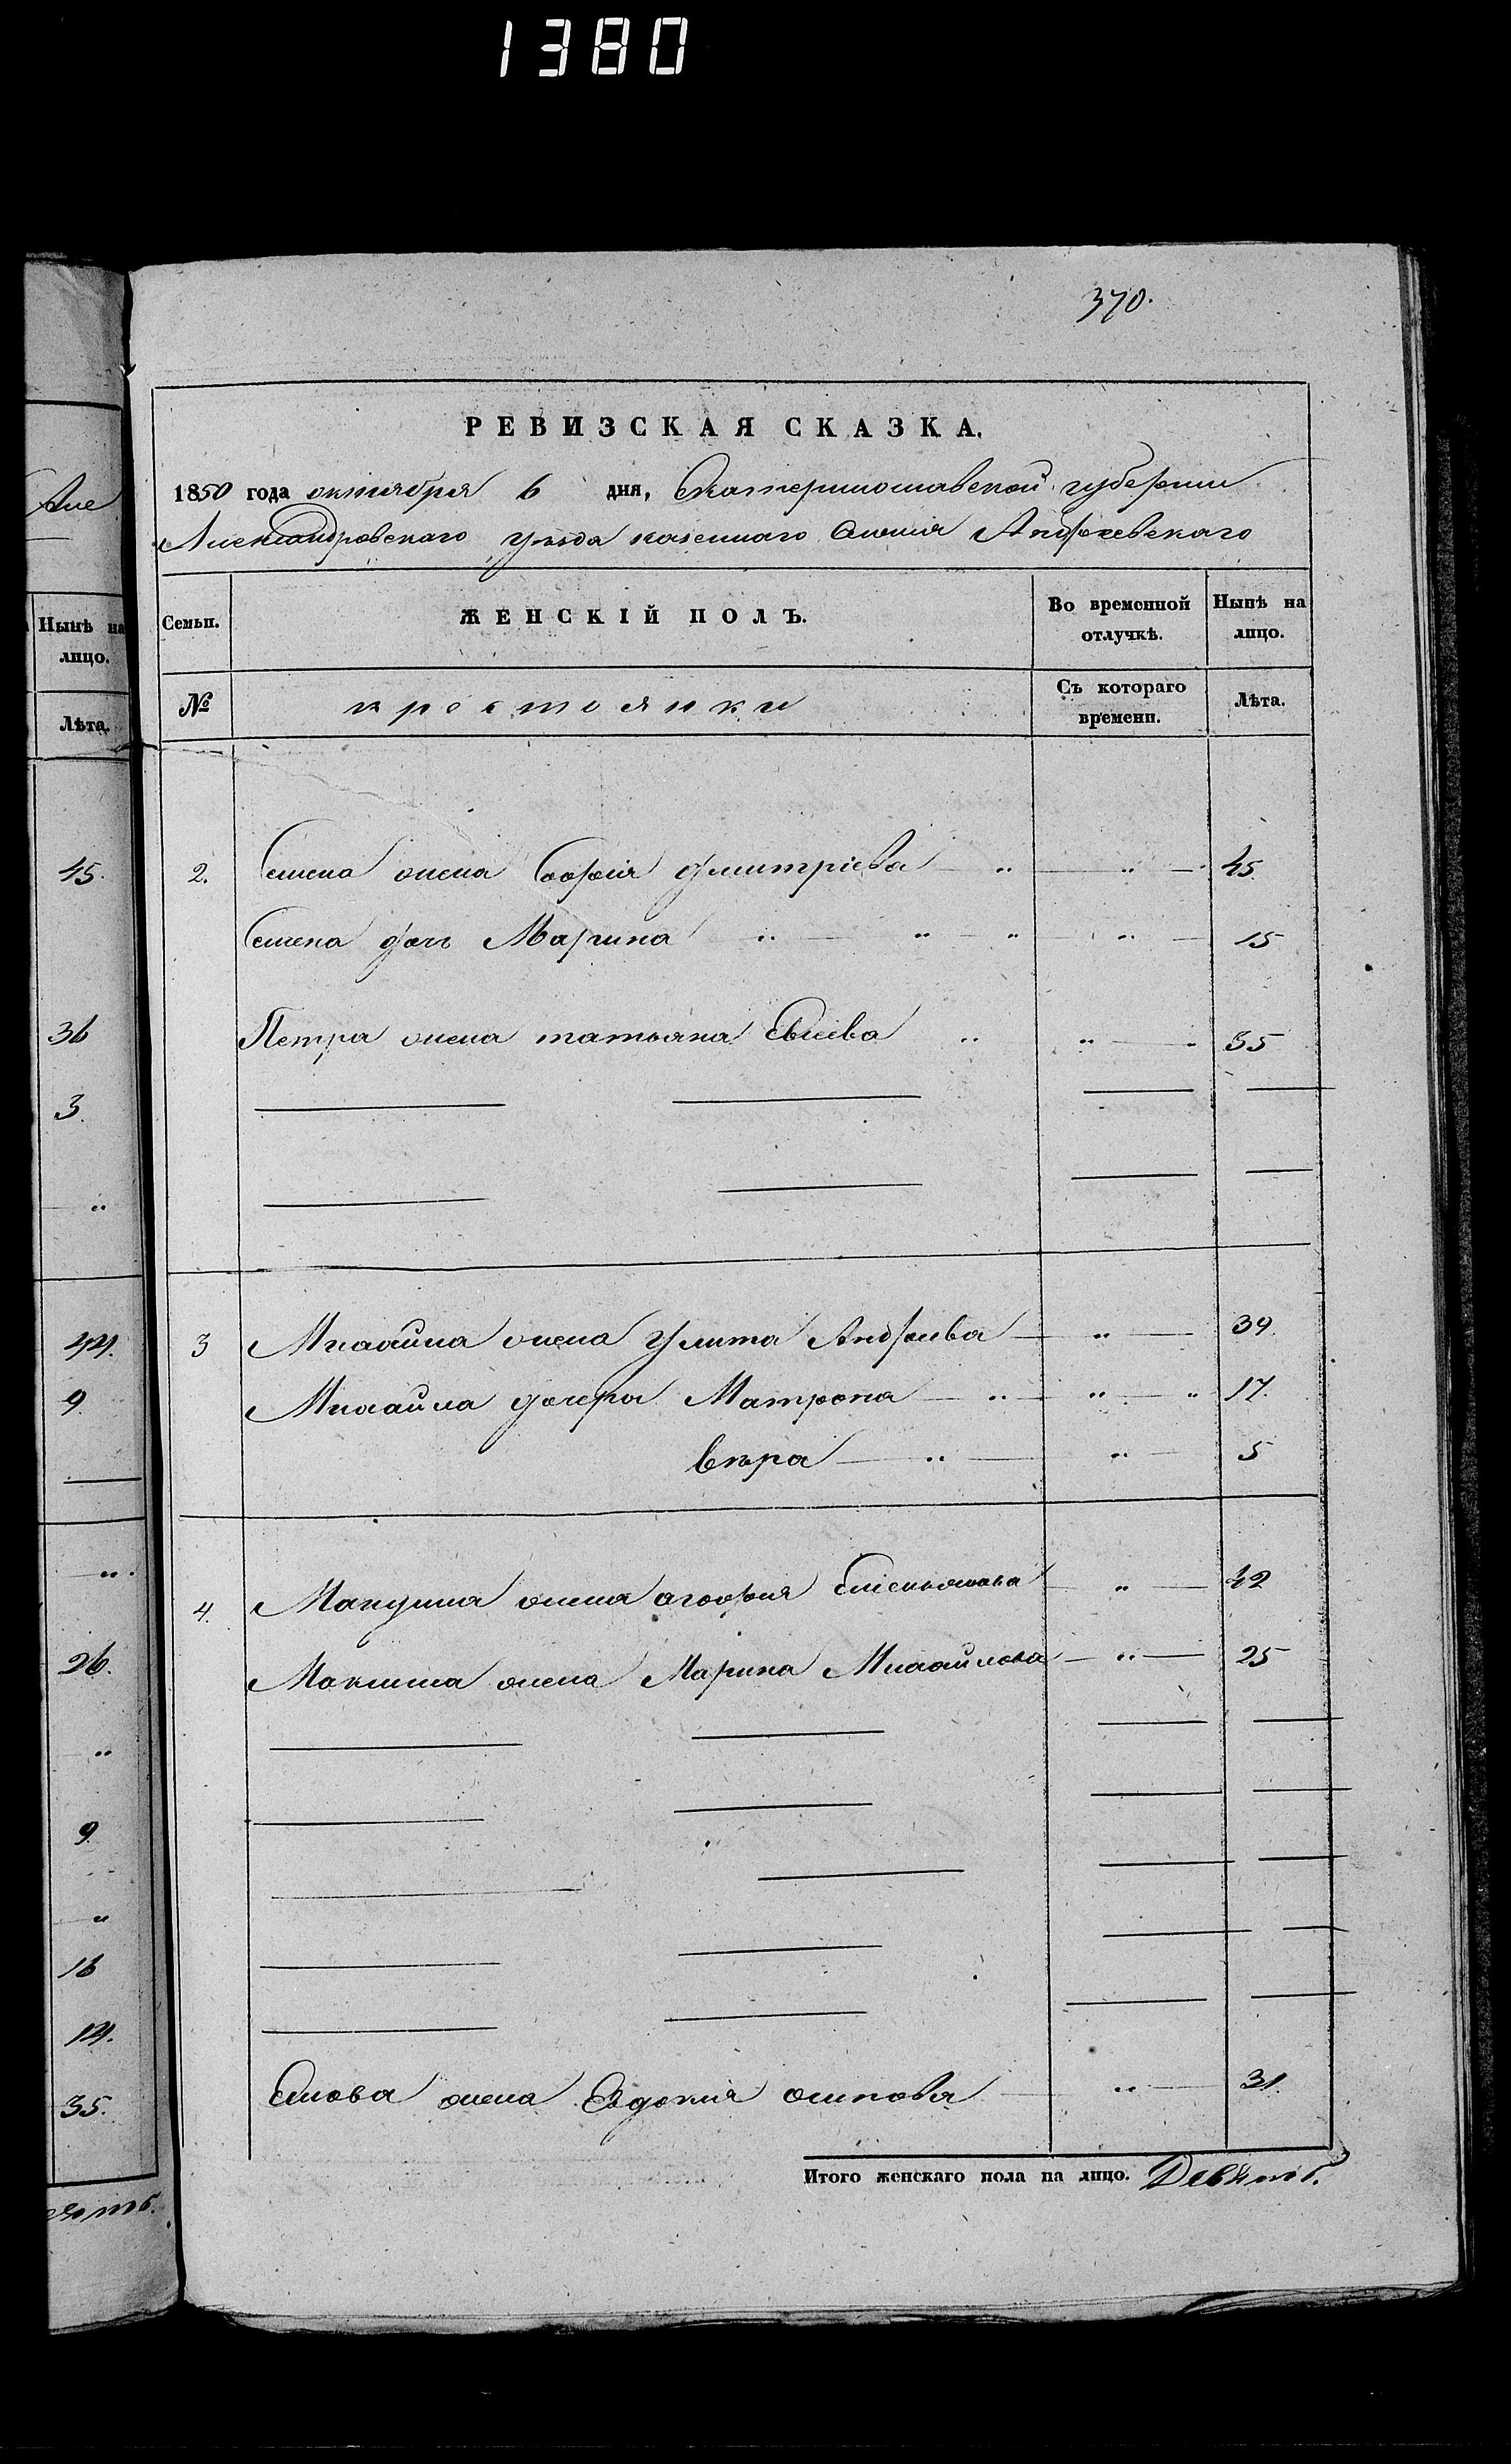 1380
370.
РЕВИЗСКАЯ СКАЗКА.
1850 года октября 6 дня, Екатеринославской губернии
Александровскаго уѣзда казеннаго Селенія Андреевскаго
Але
Ныпѣ на лицо.
Лѣта.
Семьи. ЖЕНСКІЙ ПОЛЪ. Во временной отлучкѣ. Ныпѣ на лицо.
№ крестьянки Съ котораго времени. Лѣта.
45. 2. Семена жена Софія Дмитріева — „ — „ — 45.
Семена дочь Марина „ — „ — „ — „ — 15
36 Петра жена татьяна „ „ — „ 35
3.
„
44. 3 Михайла жена Улита Андреева — „ — 39.
9. Михайла дочери Матрона — „ — „ — „ 17.
вѣра — „ — „ — 5
„
4. жена агафия — „ — 42
26. Максима жена Марина Михайлова — „ — 25
„
9.
„
16
14.
35. жена Евдокия осипова — „ — 31.
Итого женскаго пола на лицо. Девять.
ять.